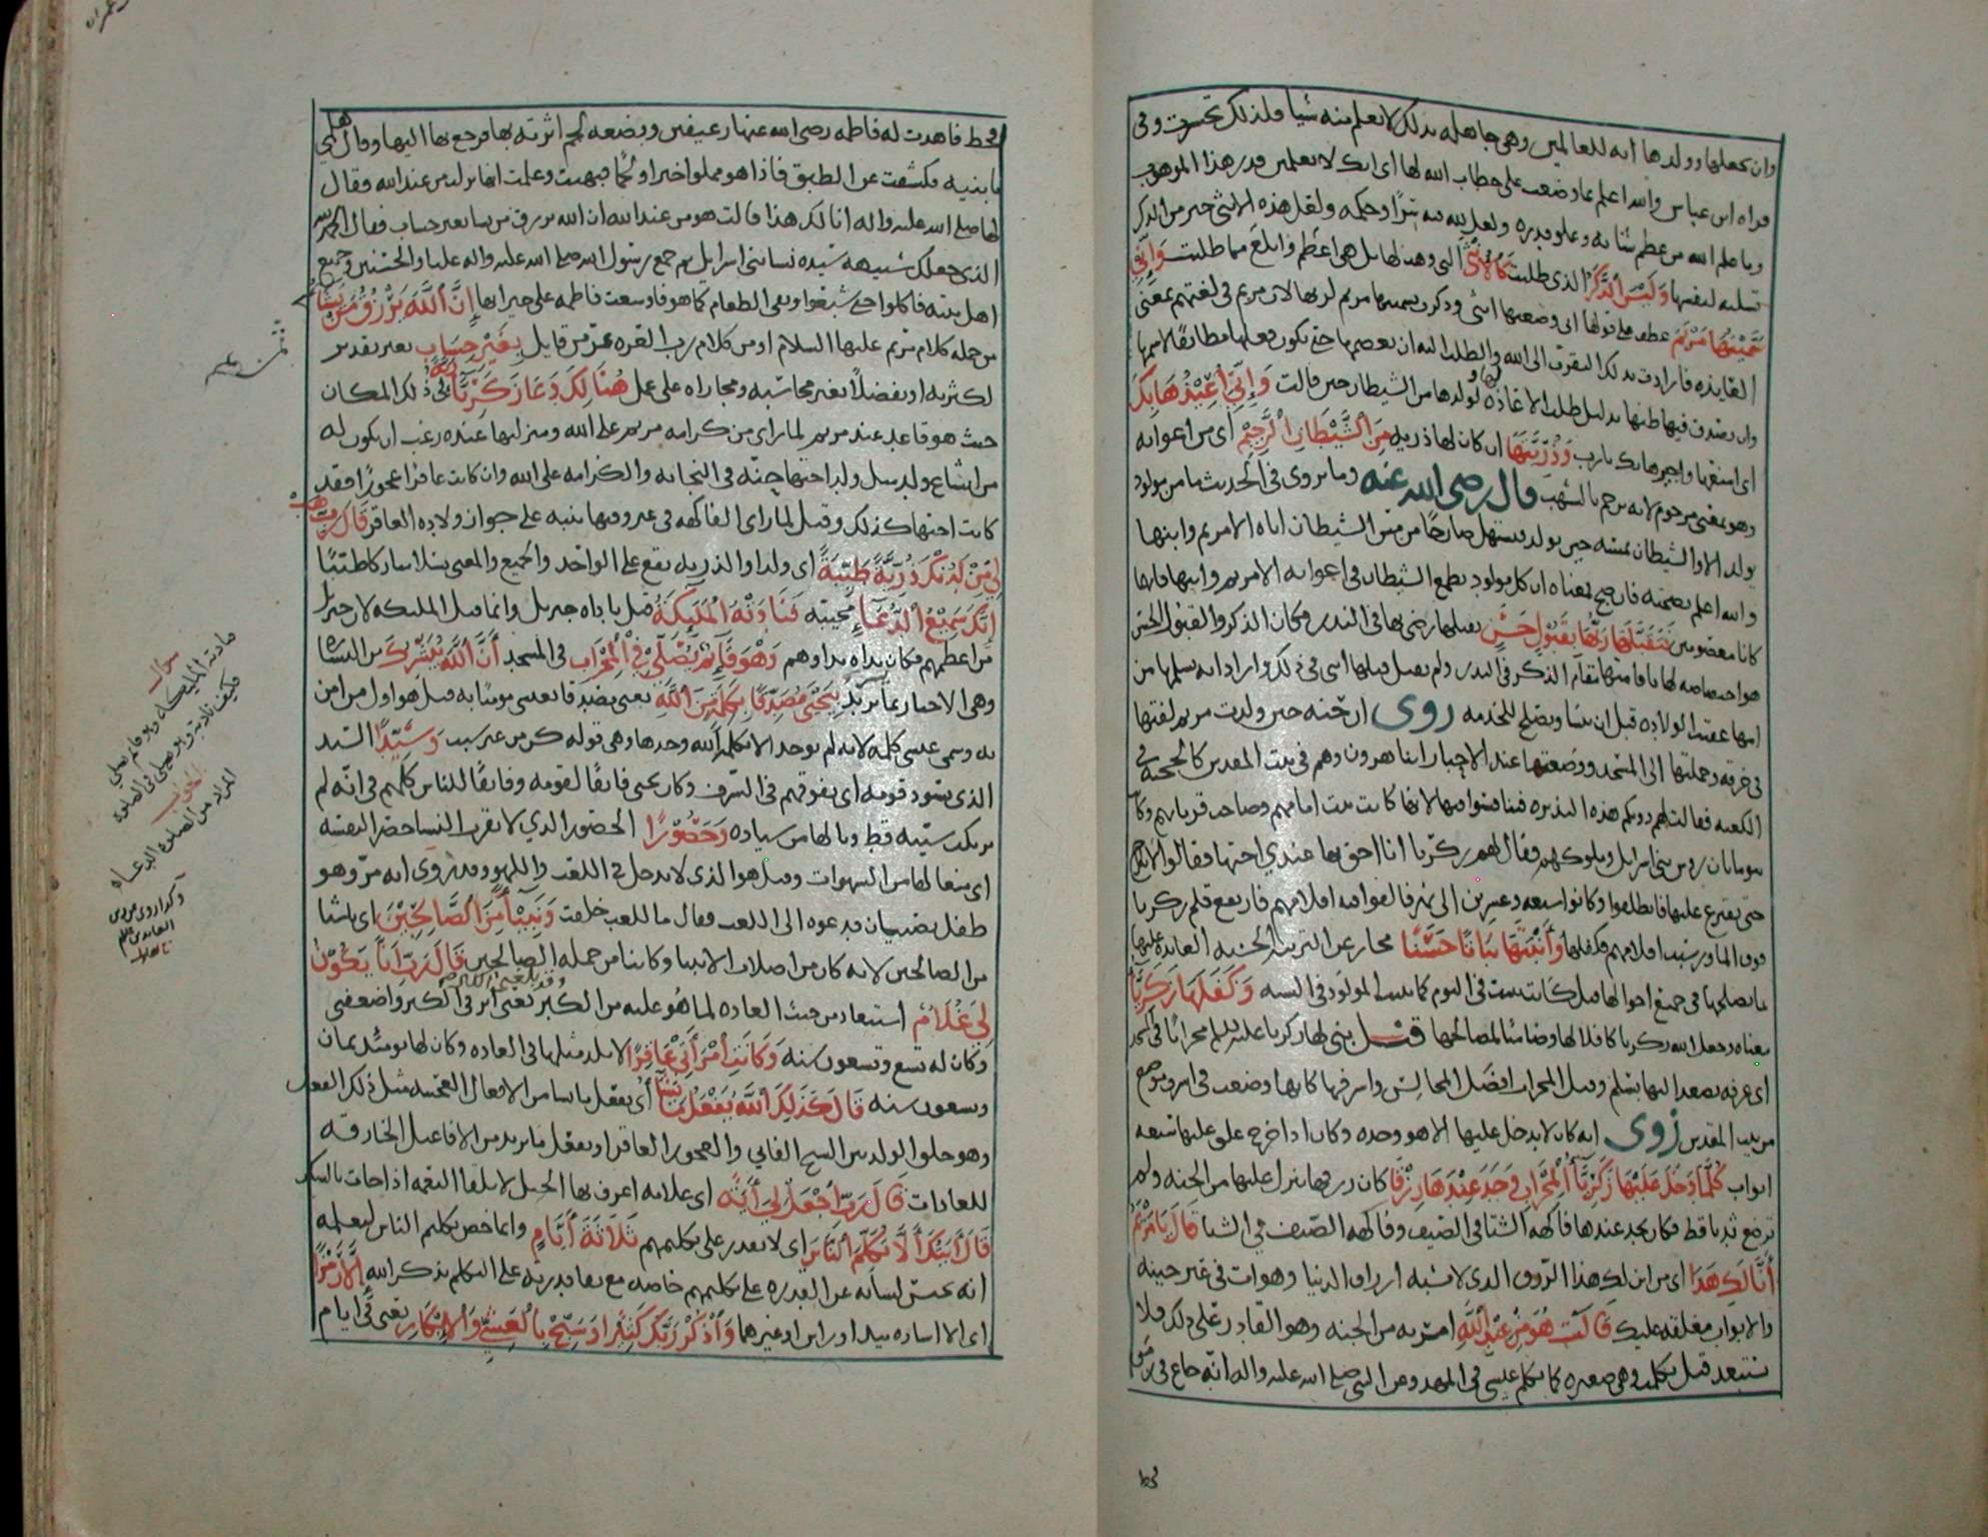 وان يجعلها وولدها آية للعالمين وهي جاهلة بذلك لا تعلم منه شيا فلذلك تحسرت وفي
قراه ابن عباس والله اعلم بما وضعت على خطاب الله لها اي انك لا تعلمين قدر هذا الموهوب
وما علم الله من عظم شانه وعلو قدره ولعل لله فيه سرًا وحكمه ولعل هذه الانثى خير من الذكر
تسليه لنفسها وَلَيْسَ ٱلذَّكَرُ الذي طلبت كَالْأُنْثَى التي وهبت لها بل هي اعظم وابلغ مما طلبت وَإِنِّي
سَمَّيْتُهَا مَرْيَمَ عطف على قولها اني وضعتها انثى وذكرت تسميتها مريم لربها لان مريم في لغتهم بمعنى
العابدة فارادت بذلك التقرب الى الله والطلب اليه ان يعصمها حتى يكون فعلها مطابقًا لاسمها
وان يصدق فيها ظنها بدليل طلب الاعاذة لها ولولدها من الشيطان حين قالت وَإِنِّي أُعِيْذُهَا بِكَ
اي امنعها واجيرها بك يا رب وَذُرِّيَّتَهَا ان كان لها ذرية مِنَ ٱلشَّيْطَانِ ٱلرَّجِيْمِ اي من اغوايه
وهو بمعنى مرجوم لانه يرجم بالشهب قال رضى الله عنه وما يروى في الحديث ما من مولود
يولد الا والشيطان يمسه حين يولد فيستهل صارخًا من مس الشيطان اياه الا مريم وابنها
والله اعلم بصحته فان صح فمعناه ان كل مولود يطمع الشيطان في اغوايه الا مريم وابنها فانهما
كانا معصومين فَتَقَبَّلَهَا رَبُّهَا بِقَبُولٍ حَسَنٍ تقبلها رضي بها في النذر مكان الذكر والقبول الحسن
هو اختصاصه لها باقامتها مقام الذكر في النذر ولم يقبل قبلها انثى في ذلك او اراد انه تسلمها من
امها عقيب الولادة قبل ان تنشا وتصلح للخدمه روى ان حنه حين ولدت مريم لفتها
في خرقه وحملتها الى المسجد ووضعتها عند الاحبار ابنا هرون وهم في بيت المقدس كالحجبة في
الكعبة فقالت لهم دونكم هذه النذيرة فتنافسوا فيها لانها كانت بنت امامهم وصاحب قربانهم وكان
بنو ماثان روس بني اسرايل وملوكهم فقال لهم زكريا انا احق بها عندي اختها فقالوا لا
حتى نقترع عليها فانطلقوا وكانوا سبعة وعشرين الى نهر فالقوا فيه اقلامهم فارتفع قلم زكريا
فوق الما ورسبت اقلامهم فكفلها وَأَنْبَتَهَا نَبَاتًا حَسَنًا مجاز عن التربية الحسنة العايدة عليها
بما يصلحها في جميع احوالها قيل كانت تنبت في اليوم كما ينبت المولود في السنة وَكَفَّلَهَا زَكَرِيَّا
معناه وجعل الله زكريا كافلا لها وضامنا لمصالحها قيل بنى لها زكريا عليه السلم محرابًا في المسجد
اي غرفة يصعد اليها بسلم وقيل المحراب افضل المجالس واشرفها كانها وضعت في اشرف موضع
من بيت المقدس روى انه كان لا يدخل عليها الا هو وحده وكان اذا خرج غلق عليها سبعة
ابواب كُلَّمَا دَخَلَ عَلَيْهَا زَكَرِيَّا ٱلْمِحْرَابَ وَجَدَ عِنْدَهَا رِزْقًا كان رزقها ينزل عليها من الجنة ولم
ترضع ثديا قط فكان يجد عندها فاكهة الشتا في الصيف وفاكهة الصيف في الشتا قَالَ يَا مَرْيَمُ
أَنَّى لَكِ هَذَا اي من اين لك هذا الرزق الذي لا يشبه ارزاق الدنيا وهو آت في غير حينه
والابواب مغلقة عليك قَالَتْ هُوَ مِنْ عِنْدِ ٱللَّهِ اي من الجنه وهو القادر على ذلك فلا
تستبعد قيل تكلمت وهي صغيرة كما تكلم عيسى في المهد وعن النبي صلى الله عليه واله انه جاع في زمن
قحط فاهدت له فاطمه رضى الله عنها رغيفين وبضعة لحم آثرته بها فرجع بها اليها وقال هلمي
يا بنية فكشفت عن الطبق فاذا هو مملوا خبزا ولحمًا فبهتت وعلمت انها نزلت من عند الله فقال
لها صلى الله عليه واله انا لك هذا قالت هو من عند الله ان الله يرزق من يشا بغير حساب فقال الحمد لله
الذي جعلك شبيهة سيدة نسا بني اسرايل ثم جمع رسول الله صلى الله عليه واله عليا والحسنين وجميع
اهل بيته فاكلوا حتى شبعوا وبقي الطعام كما هو فاوسعت فاطمة على جيرانها إِنَّ ٱللَّهَ يَرْزُقُ مَنْ يَشَاءُ
من جملة كلام مريم عليها السلام او من كلام رب العزة عز من قايل بِغَيْرِ حِسَابٍ بغير تقدير
لكثرته او تفضلًا بغير محاسبة ومجازاه على عمل هُنَالِكَ دَعَا زَكَرِيَّا رَبَّهُ في ذلك المكان
حيث هو قاعد عند مريم لما راى من كرامة مريم على الله ومنزلتها عنده رغب ان يكون له
من ايشاع ولد مثل ولد اختها حنّه في النجابه والكرامة على الله وان كانت عاقرًا عجوزًا فقد
كانت اختها كذلك وقيل لما راى الفاكهة في غير وقتها تنبه على جواز ولادة العاقر قَالَ رَبِّ هَبْ
لِي مِنْ لَدُنْكَ ذُرِّيَّةً طَيِّبَةً اي ولدا والذرية يقع على الواحد والجميع والمعنى نسلا مباركا طيبًا
إِنَّكَ سَمِيْعُ ٱلدُّعَاءِ مجيبه فَنَادَتْهُ ٱلْمَلَائِكَةُ قيل ناداه جبريل وانما قيل الملايكه لان جبريل
من اعظمهم فكان نداه نداوهم وَهُوَ قَائِمٌ يُصَلِّيْ فِي ٱلْمِحْرَابِ في المسجد أَنَّ ٱللَّهَ يُبَشِّرُكَ من البشارة
وهي الاخبار بما يريد بِيَحْيَى مُصَدِّقًا بِكَلِمَةٍ مِنَ ٱللَّهِ يعني مصدقا بعيسى مومنًا به قيل هو اول من امن
به وسمى عيسى كلمه لانه لم يوجد الا بكلمة الله وحدها وهي قوله كن من غير سبب وَسَيِّدًا السيد
الذي يسود قومه اي يفوقهم في الشرف وكان يحيى فايقًا لقومه وفايقًا للناس كلهم في انه لم
يرتكب سيئة قط ويا لها من سيادة وَحَصُوْرًا الحصور الذي لا يقرب النسا حصرا لنفسه
اي منعا لها من الشهوات وقيل هو الذي لا يدخل في اللعب واللهو وقد روى انه مرّ وهو
طفل بصبيان فدعوه الى اللعب فقال ما للعب خلقت وَنَبِيًّا مِنَ ٱلصَّالِحِيْنَ اي ناشيا
من الصالحين لانه كان من اصلاب الانبيا وكاينا من جملة الصالحين قَالَ رَبِّ أَنَّى يَكُوْنُ
وقد بلغني الكبر
لِي غُلَامٌ استبعاد من حيث العادة لما هُو عليه من الكبر يعني اثر في الكبر واضعفني
وكان له تسع وتسعون سنه وَكَانَتِ ٱمْرَأَتِيْ عَاقِرًا لا يلد مثلها في العادة وكان لها يومئذ ثمان
وتسعون سنه قَالَ كَذَلِكَ ٱللَّهُ يَفْعَلُ مَا يَشَاءُ أي يفعل ما يشا من الافعال العجيبة مثل ذلك الفعل
وهو خلق الولد بين الشيخ الفاني والعجوز العاقر او يفعل ما يريد من الافاعيل الخارقه
للعادات قَالَ رَبِّ ٱجْعَلْ لِي آيَةً اي علامة اعرف بها الحبل لاتلقا النعمه اذا جات بالشكر
قَالَ آيَتُكَ أَلَّا تُكَلِّمَ ٱلنَّاسَ اي لا تقدر على تكليمهم ثَلَاثَةَ أَيَّامٍ وانما خص تكليم الناس ليعلمه
انه يحبس لسانه عن القدرة على تكليمهم خاصة مع بقا قدرته على التكلم بذكر الله إِلَّا رَمْزًا
اي الا اشاره بيد او راس او غيرهما وَٱذْكُرْ رَبَّكَ كَثِيْرًا وَسَبِّحْ بِٱلْعَشِيِّ وَٱلْإِبْكَارِ يعني في ايام
سوال
نادته الملايكه وهو قايم يصلي
فكيف نادته وهو يصلي في الصلوة
الجواب
المراد من الصلوة الدعاء